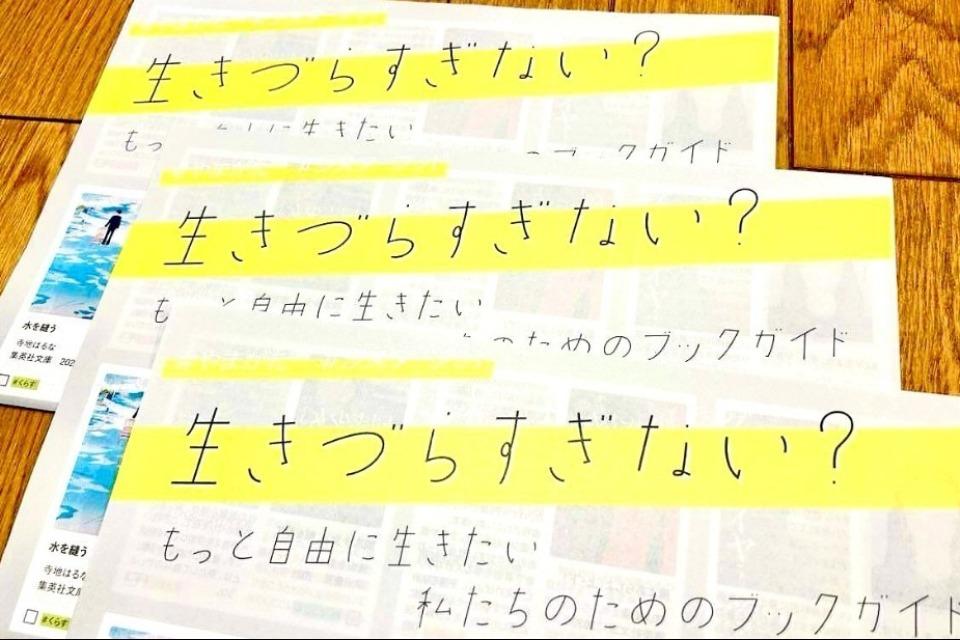 生きづらすぎない?
もっ
に生きたい
ックガイド
水を縫う
寺地はるな
集英社文庫 202
#くらす
生きづらすぎない?
もっと自由に生きたい
のためのブックガイド
水を縫う
寺地はるな
集英社文
#くらす
生きづらすぎない?
もっと自由に生きたい
私たちのためのブックガイド